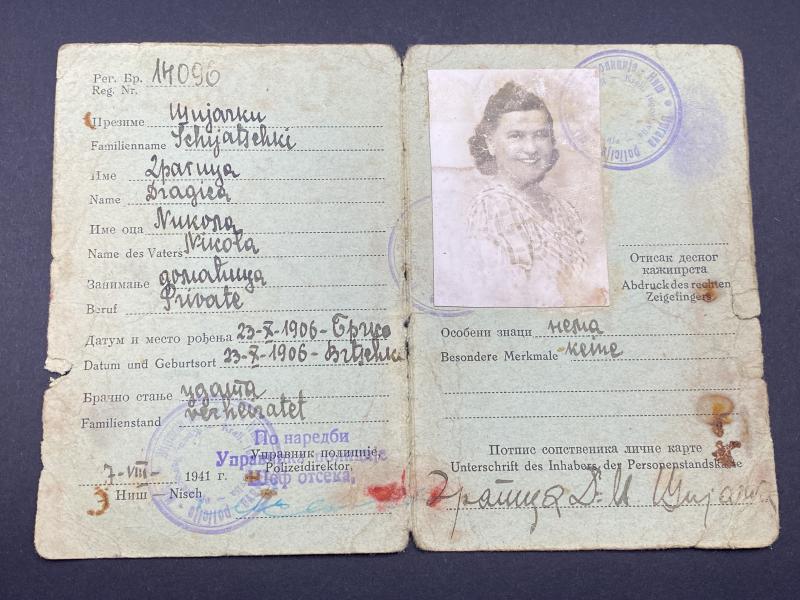 Рег. Бр. 14096
Reg. Nr.
Презиме Шијачки
Familienname Schijatschki
Име Драгица
Name Dragica
Име оца Никола
Name des Vaters Nikola
Занимање домаћица
Beruf Private
Датум и место рођења 23-X-1906-Брчко
Datum und Geburtsort 23-X-1906-
Брачно стање удата
Familienstand verheiratet
По наредби
Управник полиције,
Polizeidirektor,
Шеф отсека,
7-VIII- 1941 г.
Ниш — Nisch
Отисак десног
кажипрста
Abdruck des rechten
Zeigefingers
Особени знаци нема
Besondere Merkmale keine
Потпис сопственика личне карте
Unterschrift des Inhabers der Personenstandskarte
Драгица